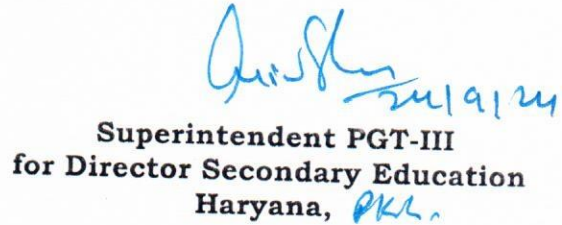 24/9/24
Superintendent PGT-III
for Director Secondary Education
Haryana, PKL.